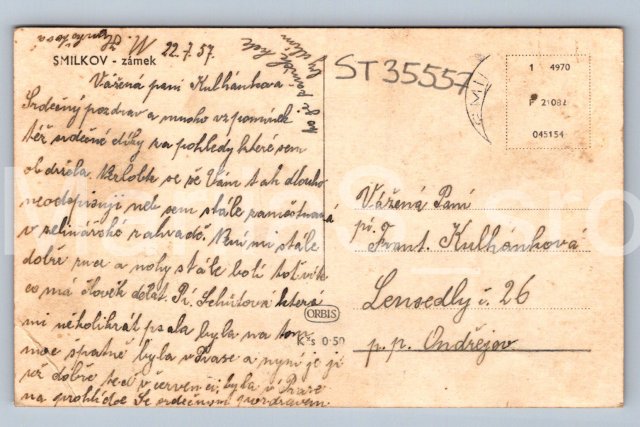 SMILKOV - zámek
22.7.57.
Vážená paní Kulhánkova
Srdečný pozdrav a mnoho vzpomínek
též srdečné díky za pohledy které sem
obdržela. Nezlobte se že Vám tak dlouho
neodepisuji neb sem stále zaměstnaná
v zelinářské zahradě. Není mi stále
dobře ruce a nohy stále bolí
co má člověk dělat. Pí. Schütová která
mi několikrát psala byla na tom
moc špatně byla v Praze a nyní je jí
též dobře byla v Praze
na prohlídce Se srdečným pozdravem
ST 35557
1 4970
P 21082
045154
Vážená Paní
pí.
Frant. Kulhánková
Lensedly č. 26
p. p. Ondřejov
ORBIS
Kčs 0·50